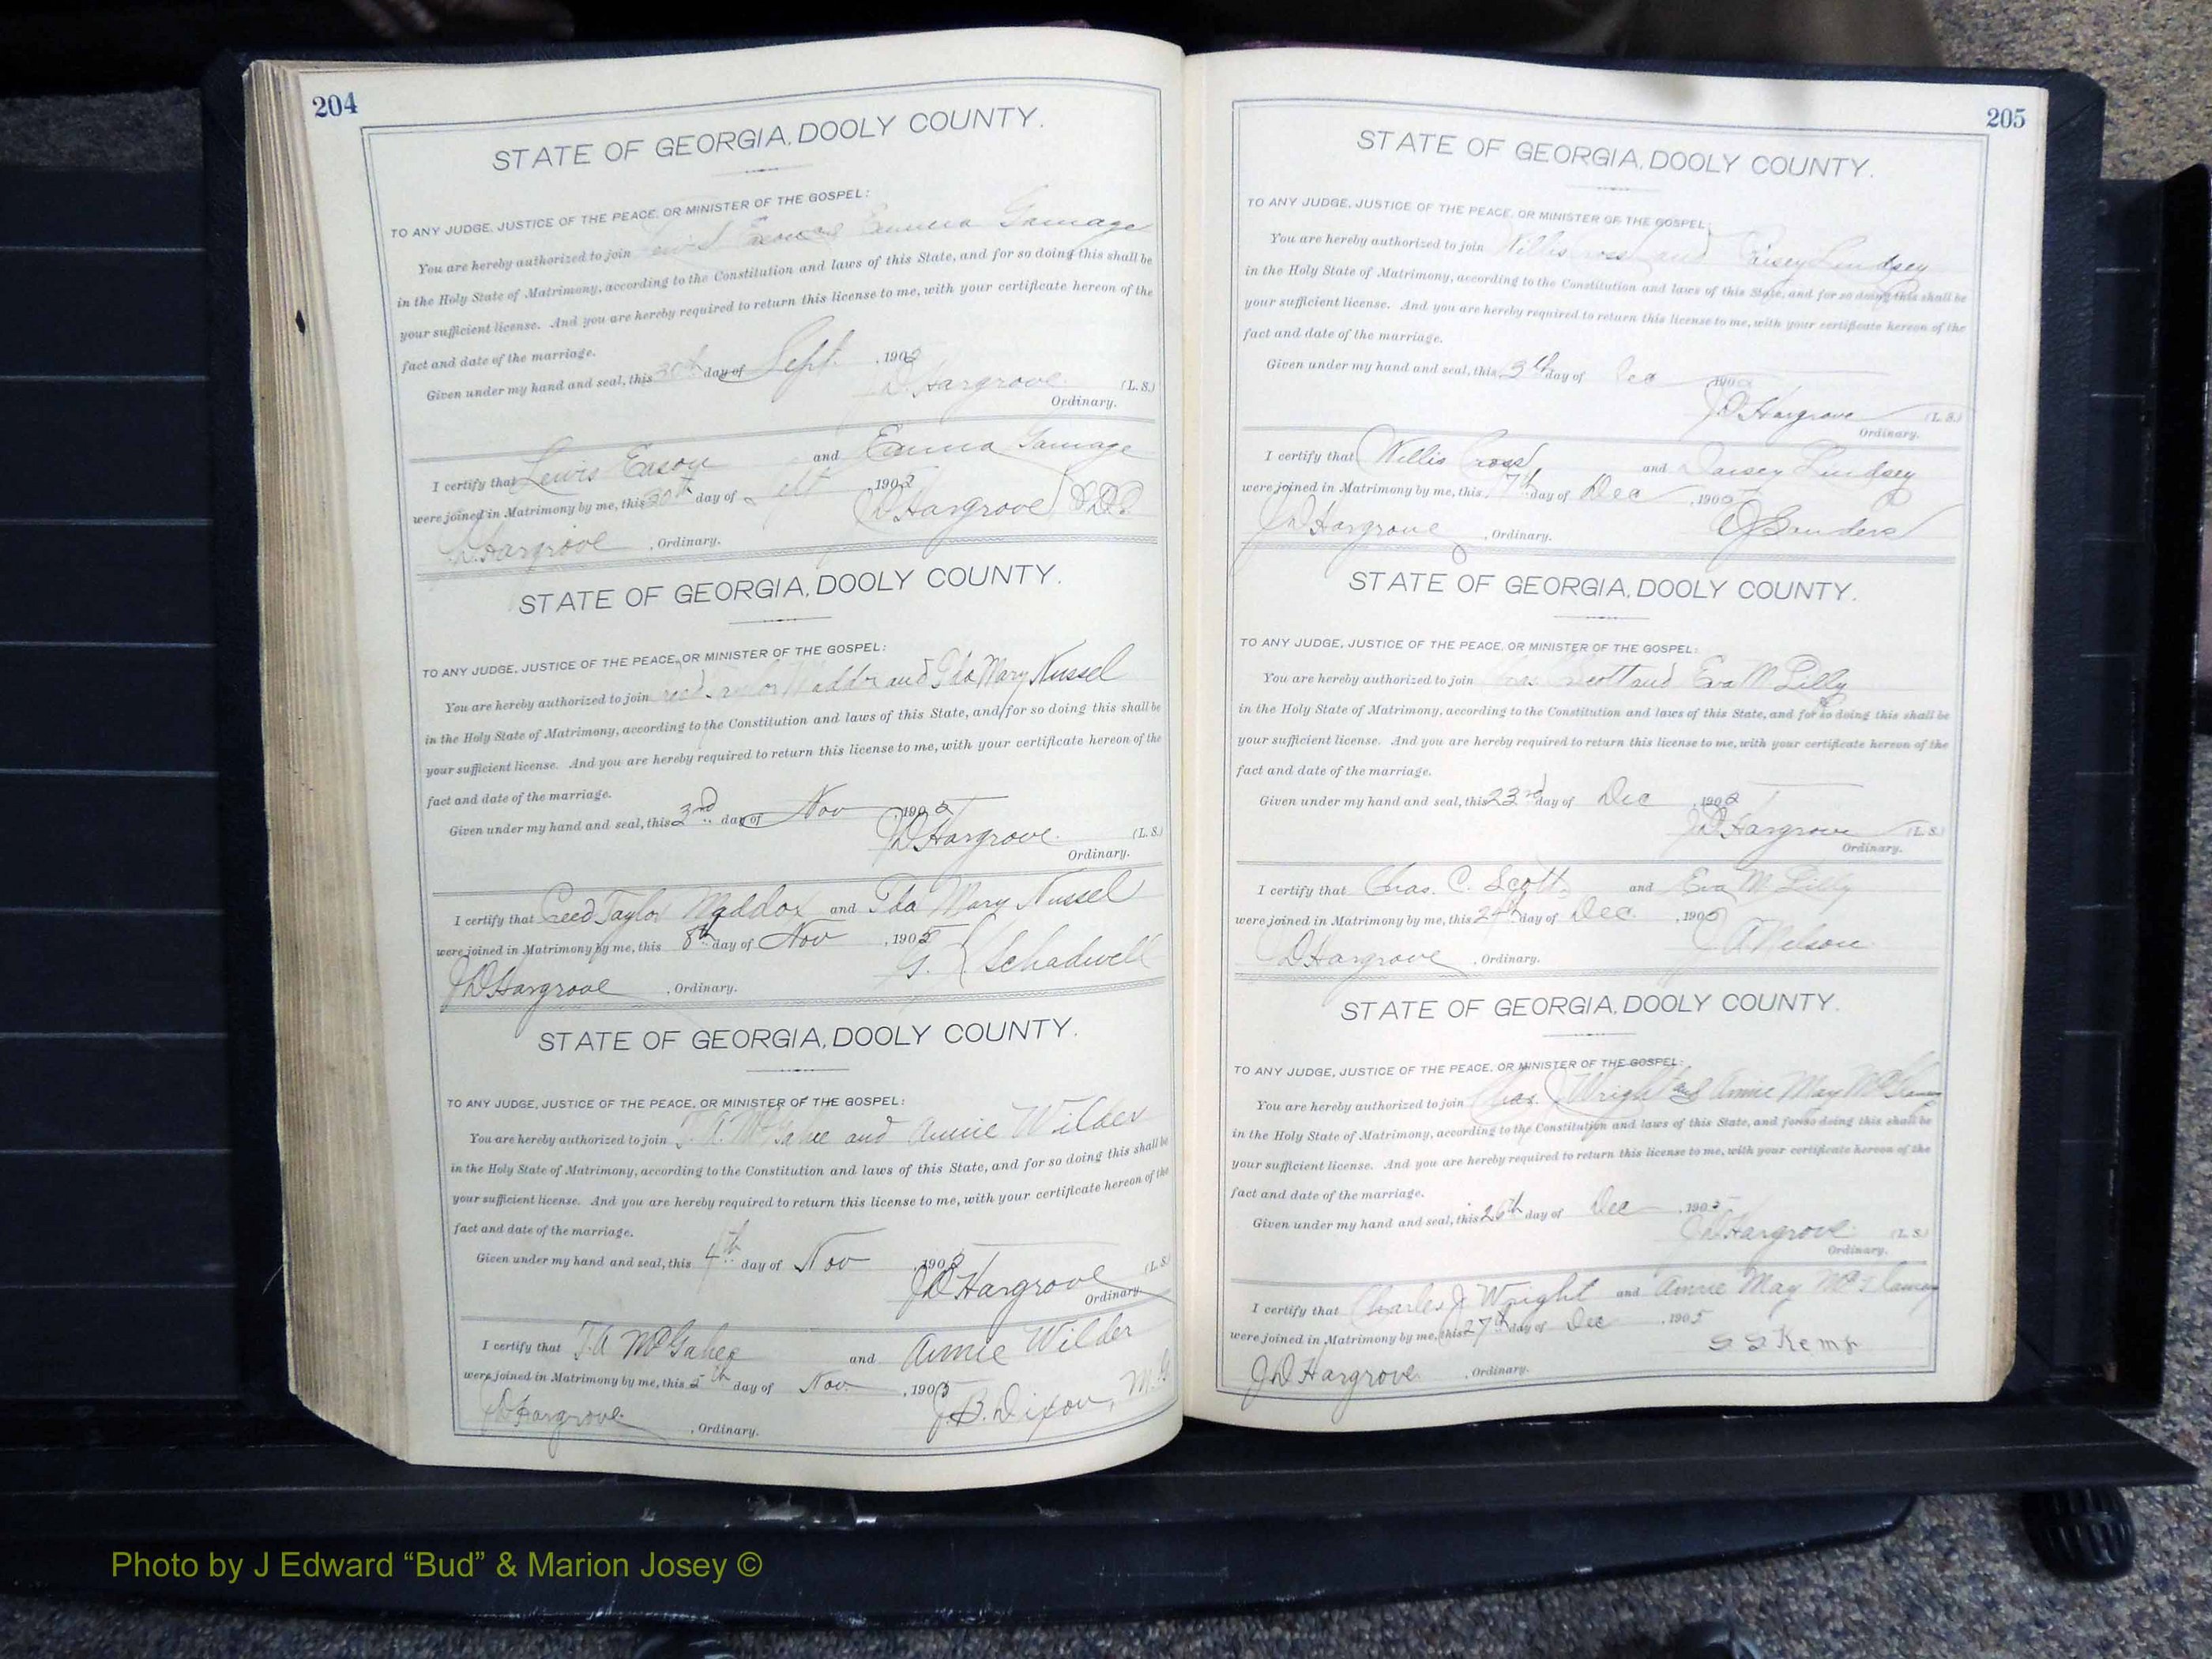 204
STATE OF GEORGIA, DOOLY COUNTY.
TO ANY JUDGE, JUSTICE OF THE PEACE, OR MINISTER OF THE GOSPEL:
You are hereby authorized to join Emma Gamage
in the Holy State of Matrimony, according to the Constitution and laws of this State, and for so doing this shall be
your sufficient license. And you are hereby required to return this license to me, with your certificate hereon of the
fact and date of the marriage.
Given under my hand and seal, this 30th day of Sept. , 190
J D Hargrove (L. S.)
Ordinary.
I certify that Lewis Eason and Emma Gamage
were joined in Matrimony by me, this 30th day of , 190
J D Hargrove , Ordinary. J D Hargrove
STATE OF GEORGIA, DOOLY COUNTY.
TO ANY JUDGE, JUSTICE OF THE PEACE, OR MINISTER OF THE GOSPEL:
You are hereby authorized to join Creed Taylor Maddox and Ida Mary Nussel
in the Holy State of Matrimony, according to the Constitution and laws of this State, and for so doing this shall be
your sufficient license. And you are hereby required to return this license to me, with your certificate hereon of the
fact and date of the marriage.
Given under my hand and seal, this 3rd day of Nov , 1905
J D Hargrove (L. S.)
Ordinary.
I certify that Creed Taylor Maddox and Ida Mary Nussel
were joined in Matrimony by me, this 8th day of Nov , 1905
J D Hargrove , Ordinary. Schadwell
STATE OF GEORGIA, DOOLY COUNTY.
TO ANY JUDGE, JUSTICE OF THE PEACE, OR MINISTER OF THE GOSPEL:
You are hereby authorized to join T. A. McGahee and Annie Wilder
in the Holy State of Matrimony, according to the Constitution and laws of this State, and for so doing this shall be
your sufficient license. And you are hereby required to return this license to me, with your certificate hereon of the
fact and date of the marriage.
Given under my hand and seal, this 4th day of Nov , 190
J D Hargrove (L. S.)
Ordinary.
I certify that T. A McGahee and Annie Wilder
were joined in Matrimony by me, this 5th day of Nov. , 1905
J D Hargrove , Ordinary. J. B. Dixon, M. G
205
STATE OF GEORGIA, DOOLY COUNTY.
TO ANY JUDGE, JUSTICE OF THE PEACE, OR MINISTER OF THE GOSPEL:
You are hereby authorized to join Willis Cross and Daisey Lindsey
in the Holy State of Matrimony, according to the Constitution and laws of this State, and for so doing this shall be
your sufficient license. And you are hereby required to return this license to me, with your certificate hereon of the
fact and date of the marriage.
Given under my hand and seal, this day of Dec , 190
J D Hargrove (L. S.)
Ordinary.
I certify that Willis Cross and Daisey Lindsey
were joined in Matrimony by me, this day of Dec , 190
J D Hargrove , Ordinary. Sanders
STATE OF GEORGIA, DOOLY COUNTY.
TO ANY JUDGE, JUSTICE OF THE PEACE, OR MINISTER OF THE GOSPEL:
You are hereby authorized to join Scott and Eva M Lilly
in the Holy State of Matrimony, according to the Constitution and laws of this State, and for so doing this shall be
your sufficient license. And you are hereby required to return this license to me, with your certificate hereon of the
fact and date of the marriage.
Given under my hand and seal, this 23rd day of Dec , 190
J D Hargrove (L. S.)
Ordinary.
I certify that Chas. C. Scott and Eva M Lilly
were joined in Matrimony by me, this 24th day of Dec. , 1905
J D Hargrove , Ordinary. J A Nelson
STATE OF GEORGIA, DOOLY COUNTY.
TO ANY JUDGE, JUSTICE OF THE PEACE, OR MINISTER OF THE GOSPEL:
You are hereby authorized to join Chas. J Wright and Annie May
in the Holy State of Matrimony, according to the Constitution and laws of this State, and for so doing this shall be
your sufficient license. And you are hereby required to return this license to me, with your certificate hereon of the
fact and date of the marriage.
Given under my hand and seal, this 26th day of Dec , 1905
J D Hargrove (L. S.)
Ordinary.
I certify that Charles J Wright and Annie May
were joined in Matrimony by me, this 27th day of Dec , 1905
J D Hargrove , Ordinary. S S Kemp
Photo by J Edward “Bud” & Marion Josey ©